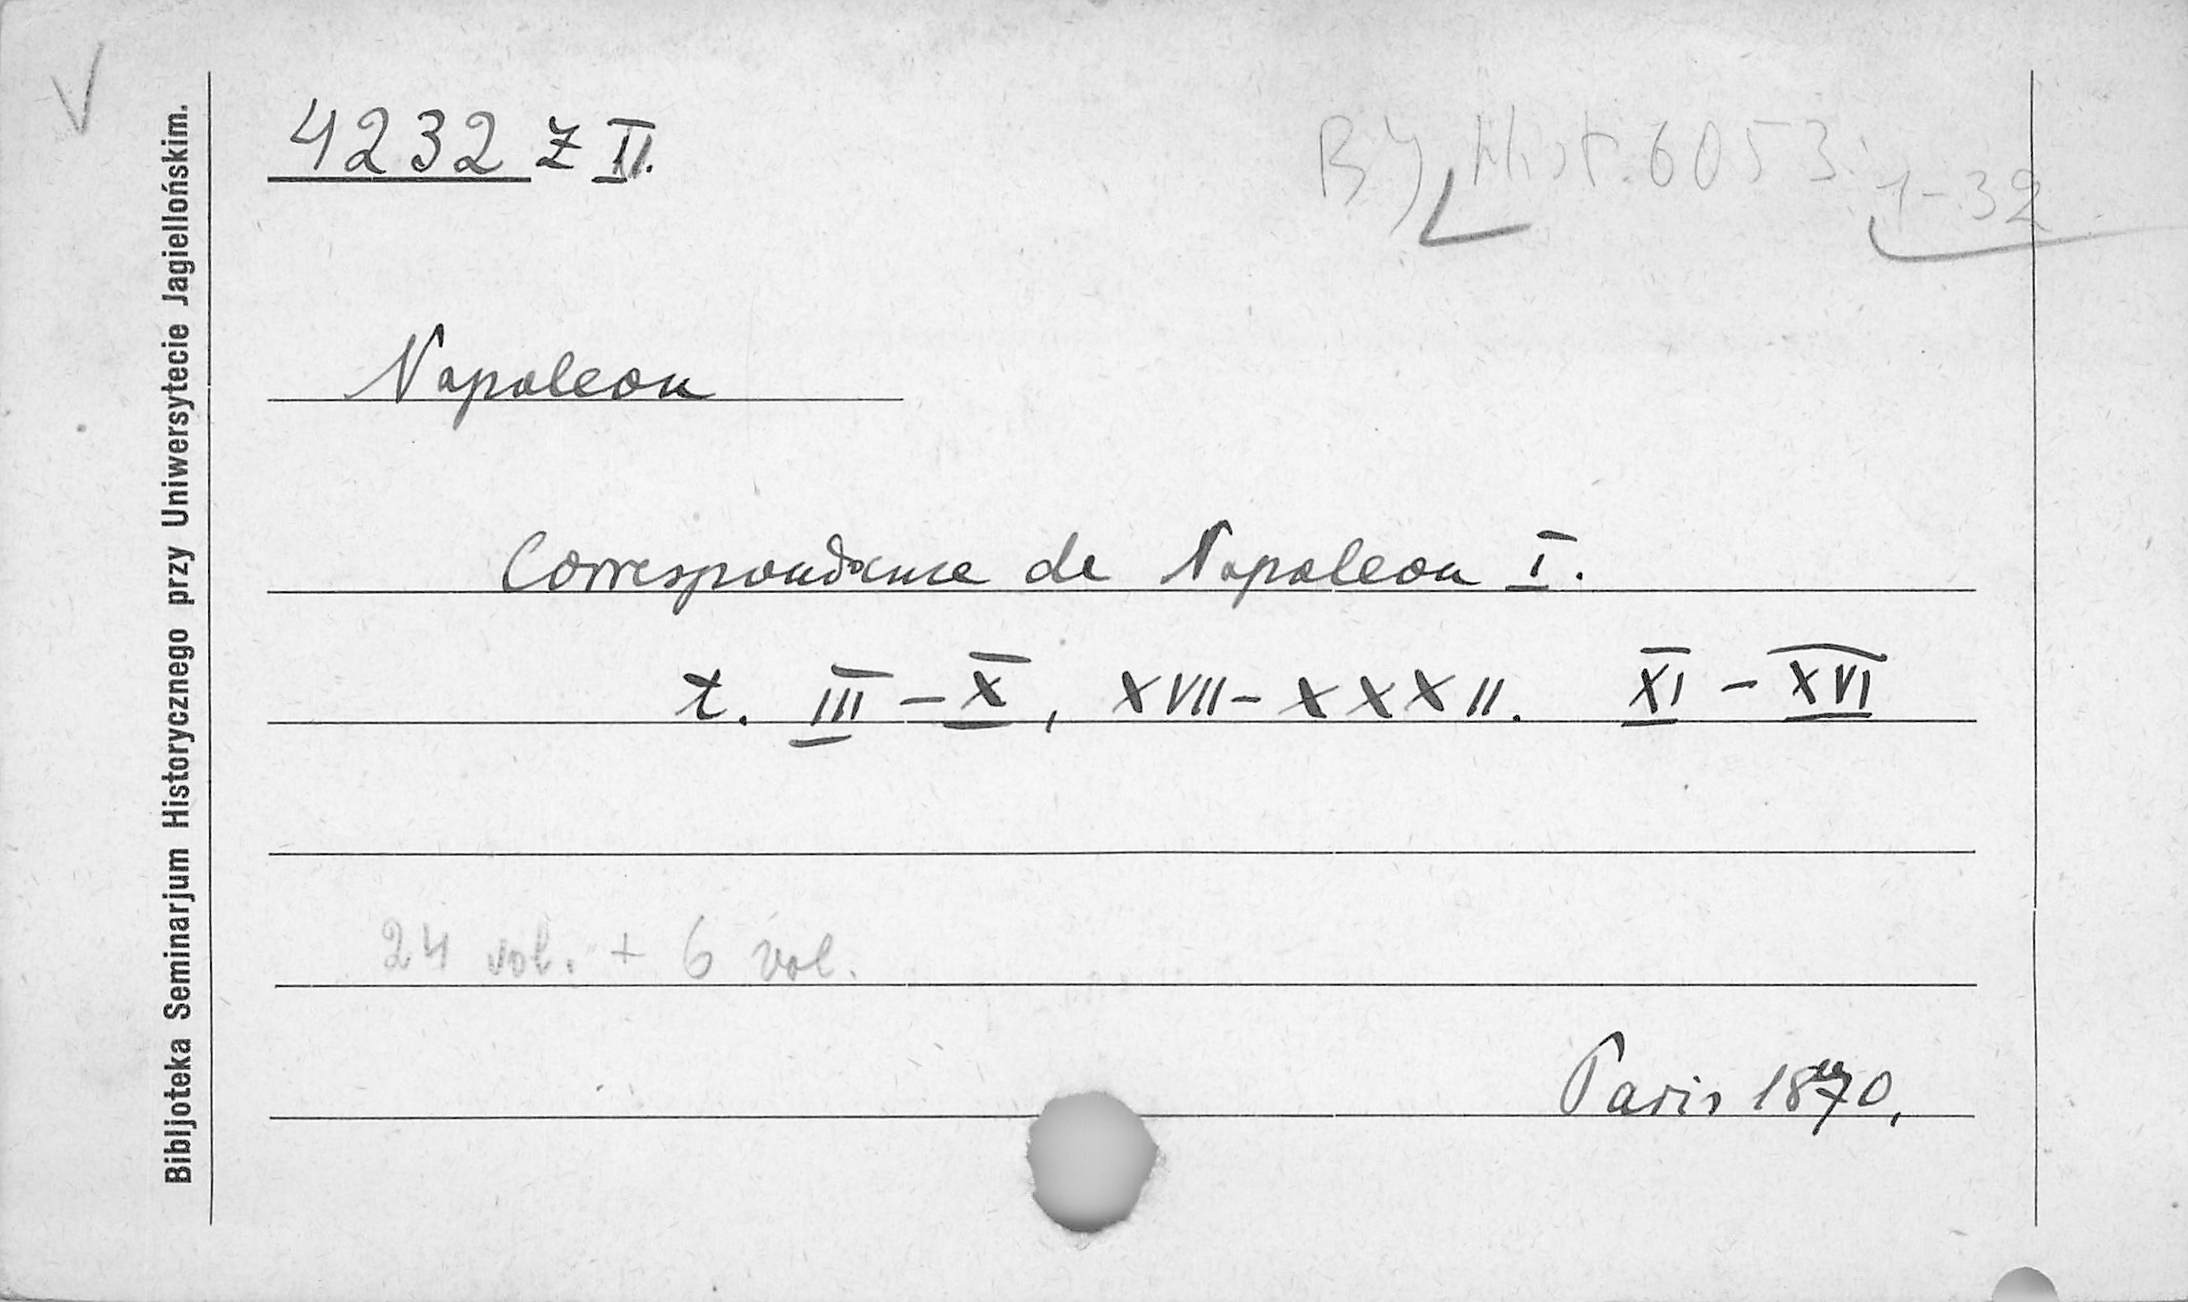 4232 Z II.
BJ Hist. 6053. 1-32
Napoleon
Correspondance de Napoleon I.
t. III – X, XVII – XXXII. XI – XVI
24 vol. + 6 vol.
Paris 1870.
Bibljoteka Seminarjum Historycznego przy Uniwersytecie Jagiellońskim.